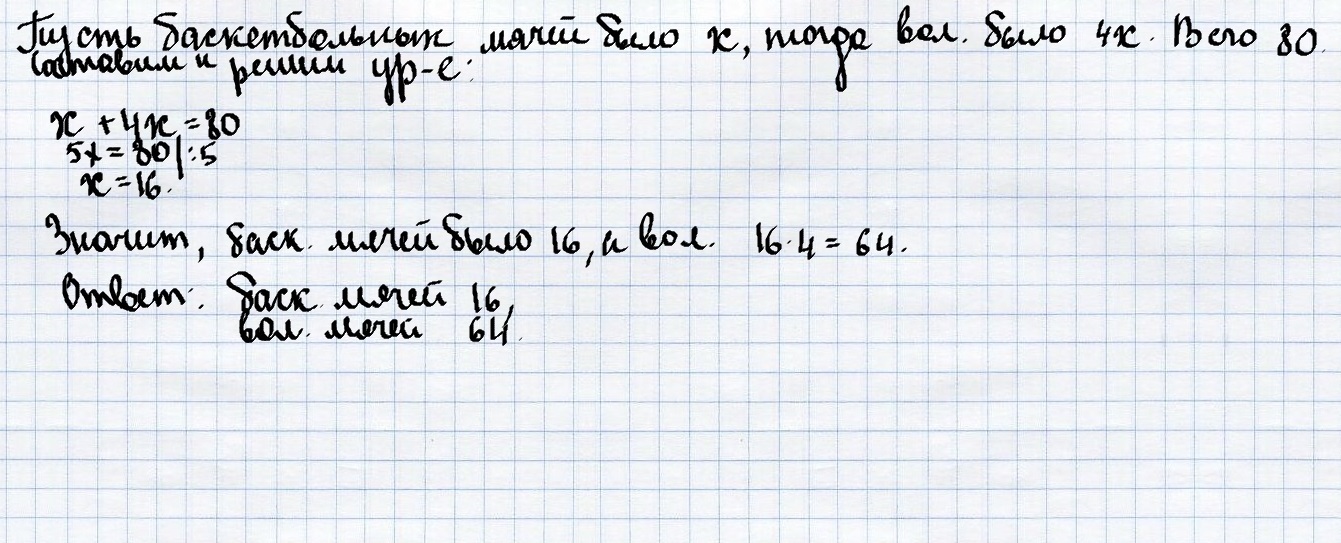 Пусть баскетбольных мячей было x, тогда вол. было 4x. Всего 80.
Составим и решим ур-е:
x + 4x = 80
5x = 80 | :5
x = 16.
Значит, баск. мячей было 16, а вол. 16·4 = 64.
Ответ: баск. мячей 16,
вол. мячей 64.